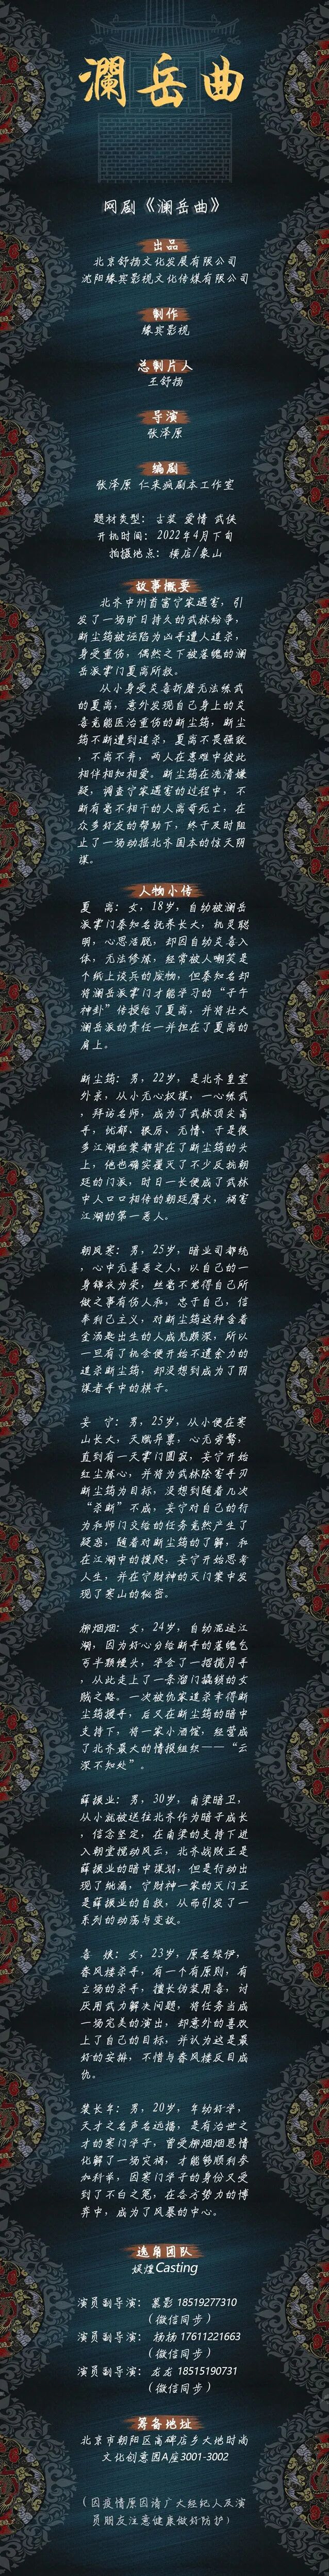 澜岳曲
网剧《澜岳曲》
出品
北京舒扬文化发展有限公司
沈阳缘宾影视文化传媒有限公司
制作
缘宾影视
总制片人
王舒扬
导演
张泽原
编剧
张泽原 仁来疯剧本工作室
题材类型：古装 爱情 武侠
开机时间：2022年4月下旬
拍摄地点：横店/象山
故事概要
北齐中州首富宁家遇害，引
发了一场旷日持久的武林纷争，
断尘筠被诬陷为凶手遭人追杀，
身受重伤，偶然之下被落魄的澜
岳派掌门夏离所救。
从小身受炎毒折磨无法练武
的夏离，意外发现自己身上的炎
毒竟能医治重伤的断尘筠，断尘
筠不断遭到追杀，夏离不畏强敌
，不离不弃，两人在患难中彼此
相伴相知相爱。断尘筠在洗清嫌
疑，调查宁家遇害的过程中，不
断有毫不相干的人离奇死亡，在
众多好友的帮助下，终于及时阻
止了一场动摇北齐国本的惊天阴
谋。
人物小传
夏 离：女，18岁，自幼被澜岳
派掌门秦知名抚养长大，机灵聪
明，心思活脱，却因自幼炎毒入
体，无法修炼，经常被人嘲笑是
个纸上谈兵的废物，但秦知名却
将澜岳派掌门才能学习的“子午
神卦”传授给了夏离，并将壮大
澜岳派的责任一并担在了夏离的
肩上。
断尘筠：男，22岁，是北齐皇室
外亲，从小无心权谋，一心练武
，拜访名师，成为了武林顶尖高
手，忧郁、狠厉、无情、于是很
多江湖血案都背在了断尘筠的头
上，他也确实覆灭了不少反抗朝
廷的门派，时日一长便成了武林
中人口口相传的朝廷鹰犬，祸害
江湖的第一恶人。
朝风寒：男，25岁，暗业司都统
，心中无善恶之人，以自己的一
身锦衣为荣，丝毫不觉得自己所
做之事有伤人和，忠于自己，信
奉利己主义，对断尘筠这种含着
金汤匙出生的人成见颇深，所以
一旦有了机会便开始不遗余力的
追杀断尘筠，却没想到成为了阴
谋者手中的棋子。
妄 宁：男，25岁，从小便在寒
山长大，天赋异禀，心无旁骛，
直到有一天掌门圆寂，妄宁开始
红尘炼心，并将为武林除害手刃
断尘筠为目标，没想到随着几次
“杀断”不成，妄宁对自己的行
为和师门交给的任务竟然产生了
疑惑，随着对断尘筠的了解，和
在江湖中的摸爬，妄宁开始思考
人生，并在宁财神的灭门案中发
现了寒山的秘密。
柳烟烟：女，24岁，自幼混迹江
湖，因为好心分给断手的落魄乞
丐半颗馒头，学会了一招揽月手
，从此走上了一条溜门撬锁的女
贼之路。一次被仇家追杀幸得断
尘筠援手，后又在断尘筠的暗中
支持下，将一家小酒馆，经营成
了北齐最大的情报组织——“云
深不知处”。
薛振业：男，30岁，南梁暗卫，
从小就被送往北齐作为暗子成长
，信念坚定，在南梁的支持下进
入朝堂搅动风云，北齐战败正是
薛振业的暗中谋划，但是行动出
现了纰漏，宁财神一家的灭门正
是薛振业的自救，从而引发了一
系列的动荡与变故。
喜 娘：女，23岁，原名绿伊，
春风楼杀手，有一个有原则，有
立场的杀手，擅长伪装用毒，讨
厌用武力解决问题，将任务当成
一场完美的演出，却意外的喜欢
上了自己的目标，并认为这是最
好的安排，不惜与春风楼反目成
仇。
裴长年：男，20岁，年幼好学，
天才之名声名远播，是有治世之
才的寒门学子，曾受柳烟烟恩情
化解了一场灾祸，才能够顺利参
加科举，因寒门学子的身份又受
到了不白之冤，在各方势力的博
弈中，成为了风暴的中心。
选角团队
娱煌Casting
演员副导演：慕影 18519277310
（微信同步）
演员副导演：杨杨 17611221663
（微信同步）
演员副导演：龙龙 18515190731
（微信同步）
筹备地址
北京市朝阳区高碑店乡大地时尚
文化创意园A座3001-3002
（因疫情原因请广大经纪人及演
员朋友注意健康做好防护）